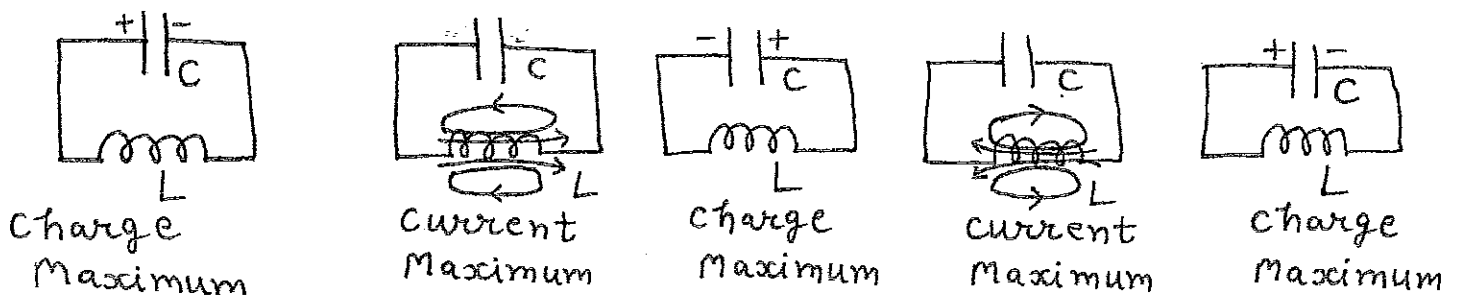 + -
C
L
Charge
Maximum
C
L
Current
Maximum
- +
C
L
Charge
Maximum
C
L
current
Maximum
+ -
C
L
Charge
Maximum